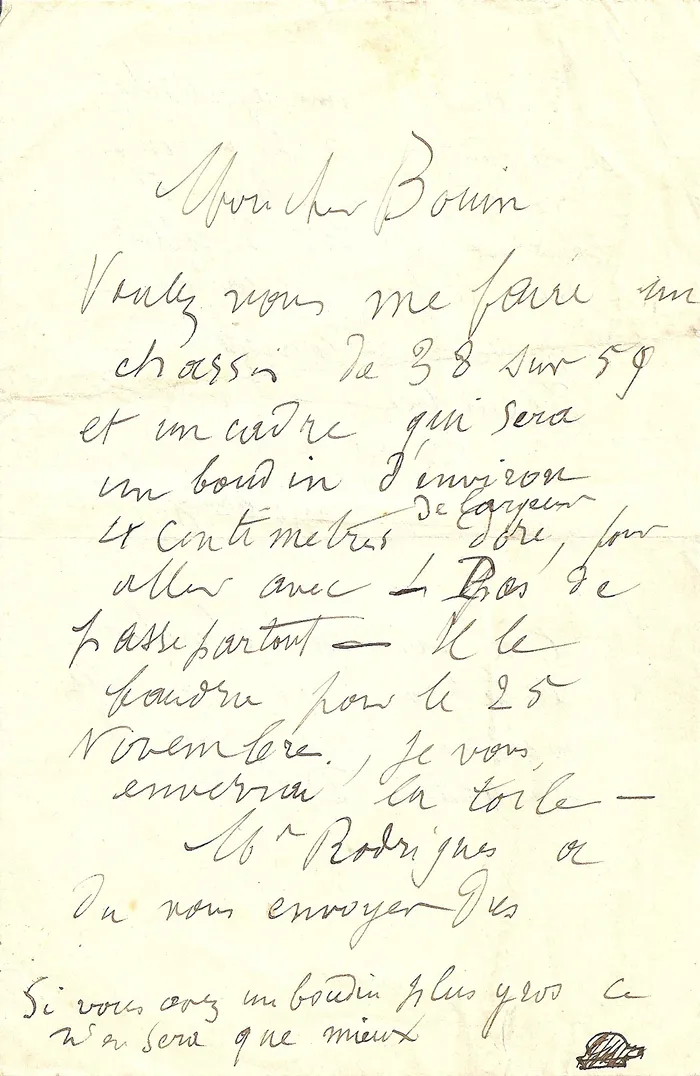 Mon cher Bouin
Voulez vous me faire un
chassis de 38 sur 59
et un cadre qui sera
un boudin d'environ
de largeur
4 centimetres, doré, pour
aller avec — Pas de
passepartout — Il le
faudra pour le 25
Novembre, je vous
enverrai la toile —
Mr Rodrigues a
du vous envoyer des
Si vous avez un boudin plus gros ce
n'en sera que mieux